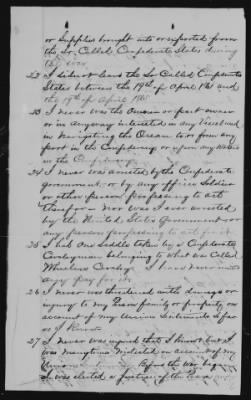 or Supplies brought into or exported from
the So. Called Confederate States during
the war
22 I did not leave the So Called Confederate
States between the 19th of April 1861 and
the 19th of April 1865
23 I never was the Owner or part owner
or in anyway interested in any Vessel used
in Navigating the Ocean to or from any
port in the Confederacy or upon any waters
in the Confederacy
24 I never was arrested by the Confederate
government or by any officer Soldier
or other person professing to act
therefor Nor was I ever arrested
by the United States Government or
any person professing to act for it
25 I had One Saddle taken by a Confederate
Cavalryman belonging to what was Called
Wheelers Cavalry I have never
any pay for it
26 I never was threatened with damage or
injury to my Person family or property on
account of my Union Sentiments So far
as I Know
27 I never was injured that I Know but I
was maltreated on account of my
Union Before the war began
I was elected a Justice of the Peace